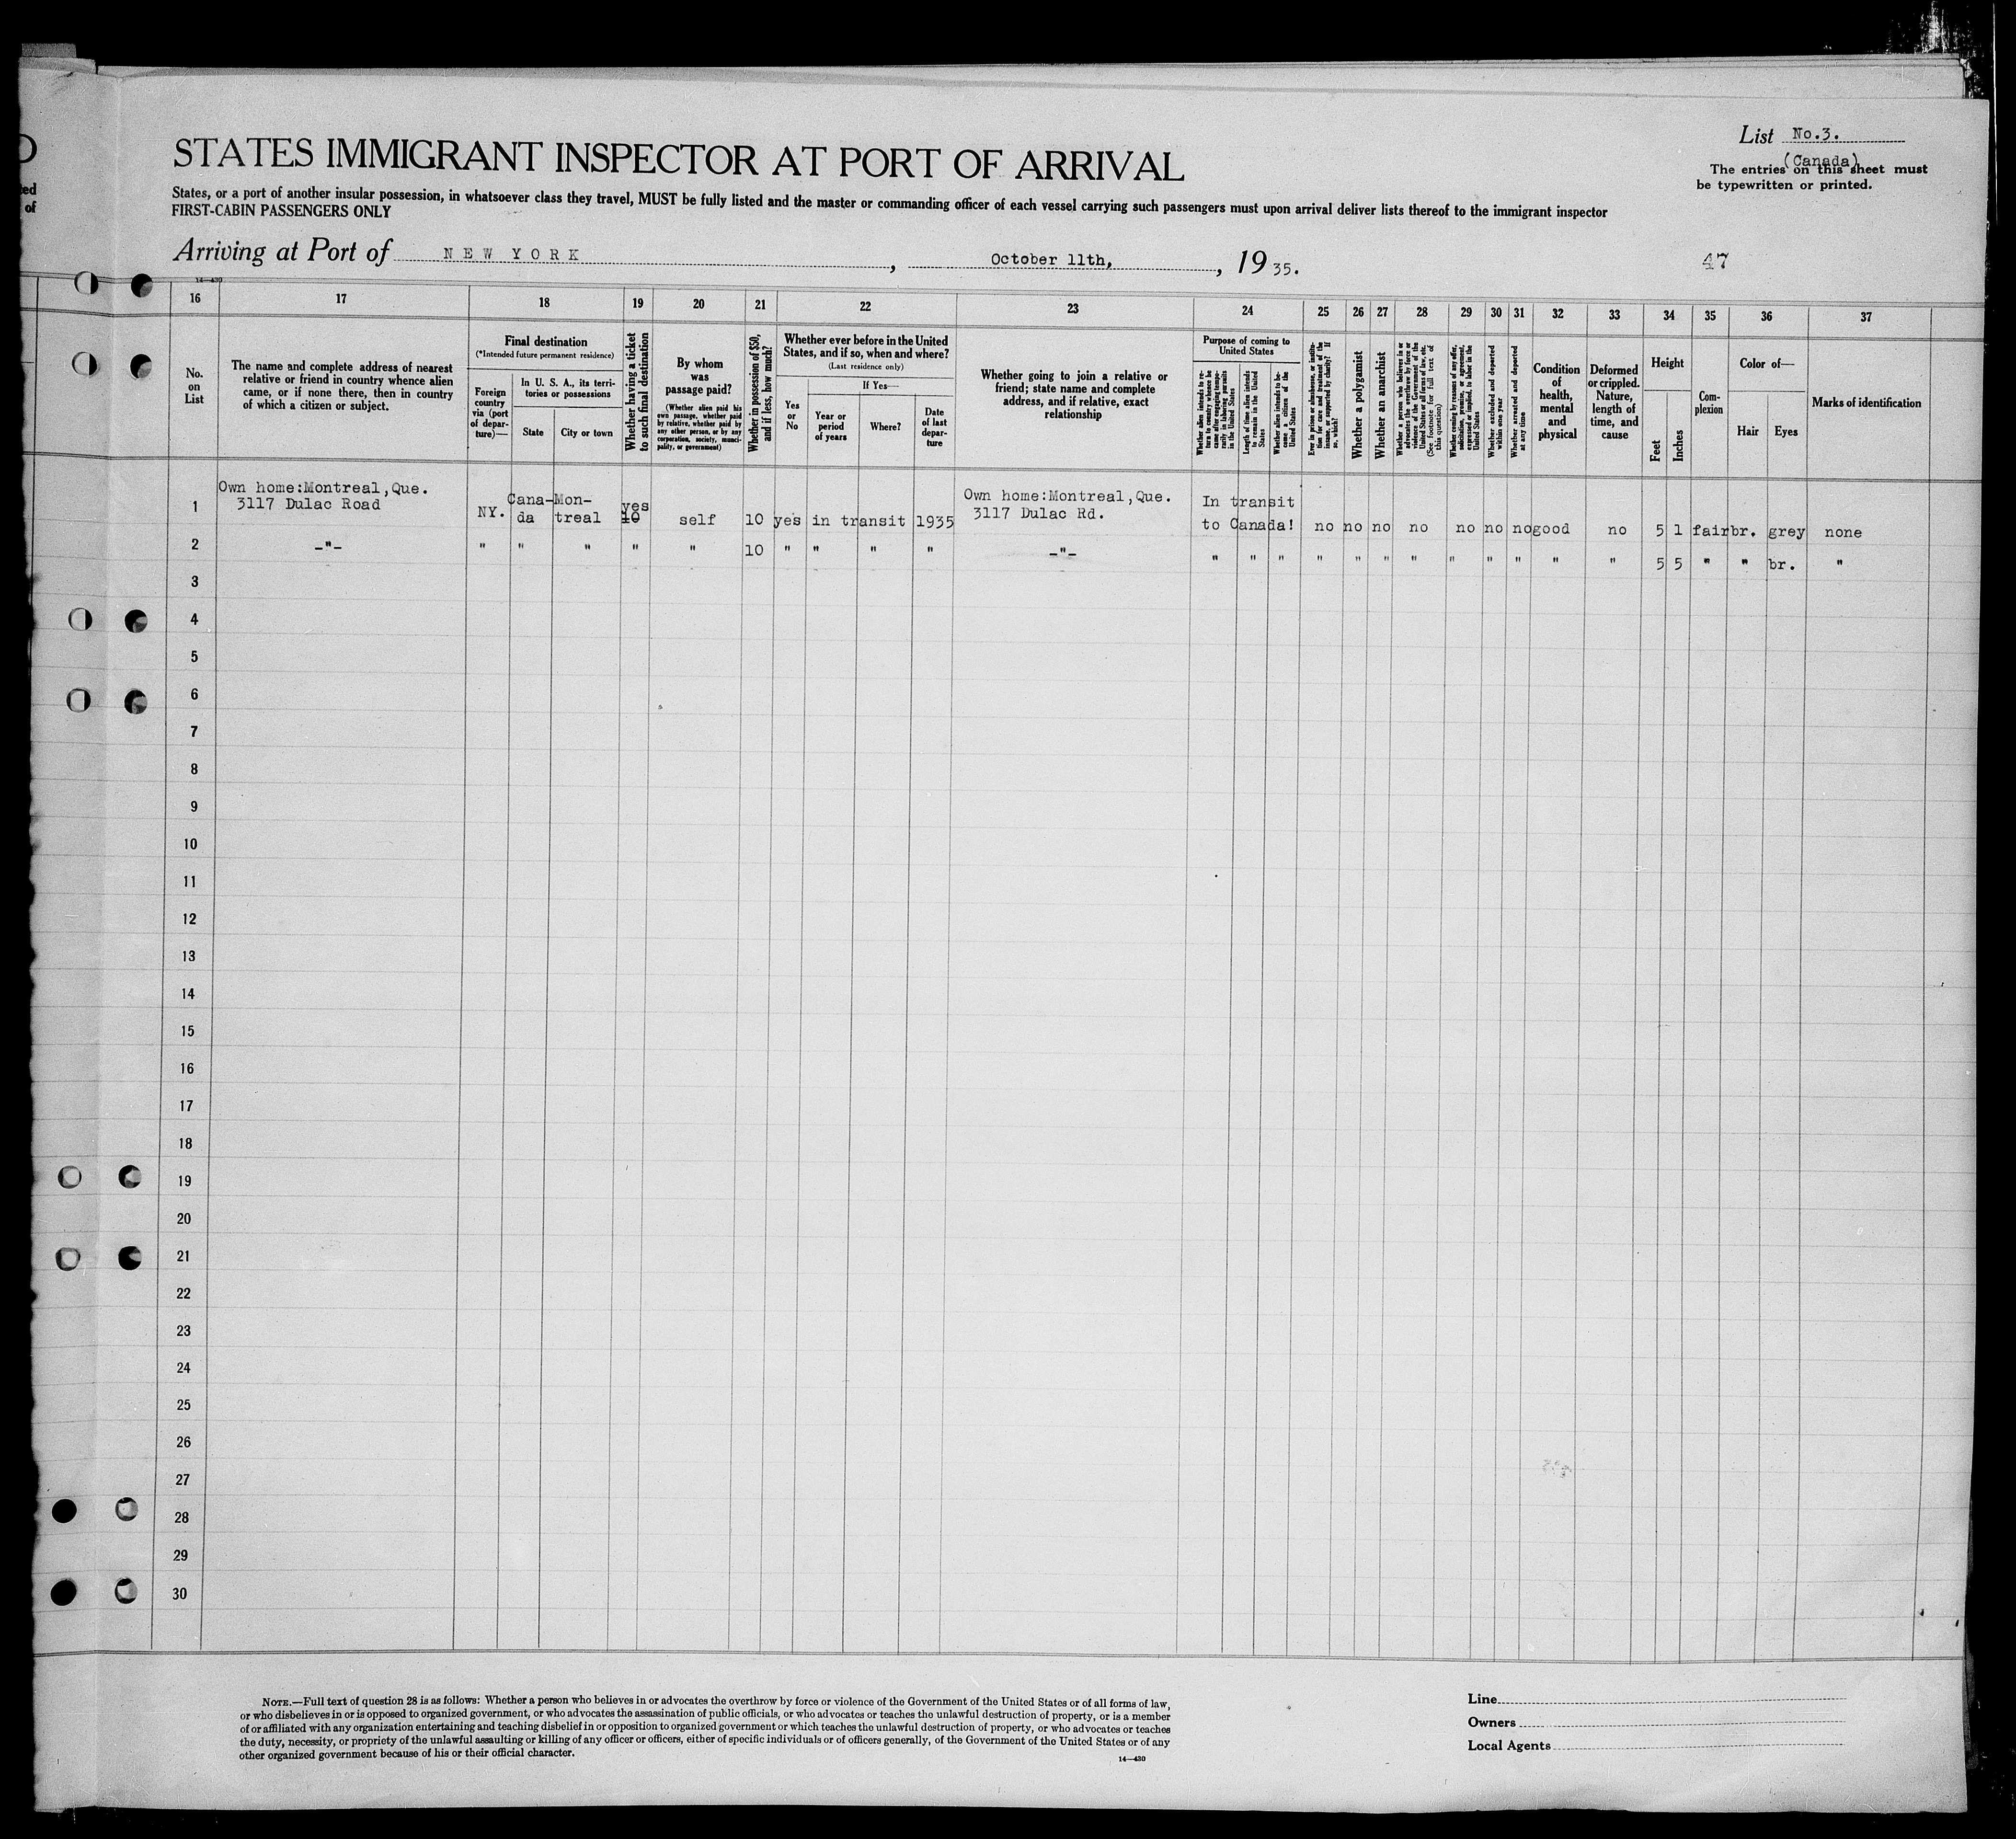 ed
of
List No.3.
(Canada)
The entries on this sheet must
be typewritten or printed.
STATES IMMIGRANT INSPECTOR AT PORT OF ARRIVAL
States, or a port of another insular possession, in whatsoever class they travel, MUST be fully listed and the master or commanding officer of each vessel carrying such passengers must upon arrival deliver lists thereof to the immigrant inspector
FIRST-CABIN PASSENGERS ONLY
Arriving at Port of NEW YORK, October 11th, 1935.
47
14—430
16 17 18 19 20 21 22 23 24 25 26 27 28 29 30 31 32 33 34 35 36 37
No.
on
List
The name and complete address of nearest
relative or friend in country whence alien
came, or if none there, then in country
of which a citizen or subject.
Final destination
(*Intended future permanent residence)
Foreign
country
via (port
of depar-
ture)—
In U. S. A., its terri-
tories or possessions
State
City or town
Whether having a ticket
to such final destination
By whom
was
passage paid?
(Whether alien paid his
own passage, whether paid
by relative, whether paid by
any other person, or by any
corporation, society, munici-
pality, or government)
Whether in possession of $50,
and if less, how much?
Whether ever before in the United
States, and if so, when and where?
(Last residence only)
Yes
or
No
If Yes—
Year or
period
of years
Where?
Date
of last
depar-
ture
Whether going to join a relative or
friend; state name and complete
address, and if relative, exact
relationship
Purpose of coming to
United States
Whether alien intends to re-
turn to country whence he
came after engaging tempo-
rarily in laboring pursuits
in the United States
Length of time alien intends
to remain in the United
States
Whether alien intends to be-
come a citizen of the
United States
Ever in prison or almshouse, or institu-
tion for care and treatment of the
insane, or supported by charity? If
so, which?
Whether a polygamist
Whether an anarchist
Whether a person who believes in or
advocates the overthrow by force or
violence of the Government of the
United States or all forms of law, etc.
(See footnote for full text of
this question)
Whether coming by reasons of any offer,
solicitation, promise, or agreement,
expressed or implied, to labor in the
United States
Whether excluded and deported
within one year
Whether arrested and deported
at any time
Condition
of
health,
mental
and
physical
Deformed
or crippled.
Nature,
length of
time, and
cause
Height
Feet
Inches
Com-
plexion
Color of—
Hair
Eyes
Marks of identification
Own home:Montreal,Que.
1 3117 Dulac Road NY. Cana-da Mon-treal yes 10 self 10 yes in transit 1935 Own home:Montreal,Que. 3117 Dulac Rd. In transit to Canada! no no no no no no no good no 5 1 fair br. grey none
2 -"- " " " " " 10 " " " " -"- " " " " " " " " " " " " 5 5 " " br. "
3
4
5
6
7
8
9
10
11
12
13
14
15
16
17
18
19
20
21
22
23
24
25
26
27
28
29
30
NOTE.—Full text of question 28 is as follows: Whether a person who believes in or advocates the overthrow by force or violence of the Government of the United States or of all forms of law,
or who disbelieves in or is opposed to organized government, or who advocates the assassination of public officials, or who advocates or teaches the unlawful destruction of property, or is a member
of or affiliated with any organization entertaining and teaching disbelief in or opposition to organized government or which teaches the unlawful destruction of property, or who advocates or teaches
the duty, necessity, or propriety of the unlawful assaulting or killing of any officer or officers, either of specific individuals or of officers generally, of the Government of the United States or of any
other organized government because of his or their official character.
14—430
Line
Owners
Local Agents